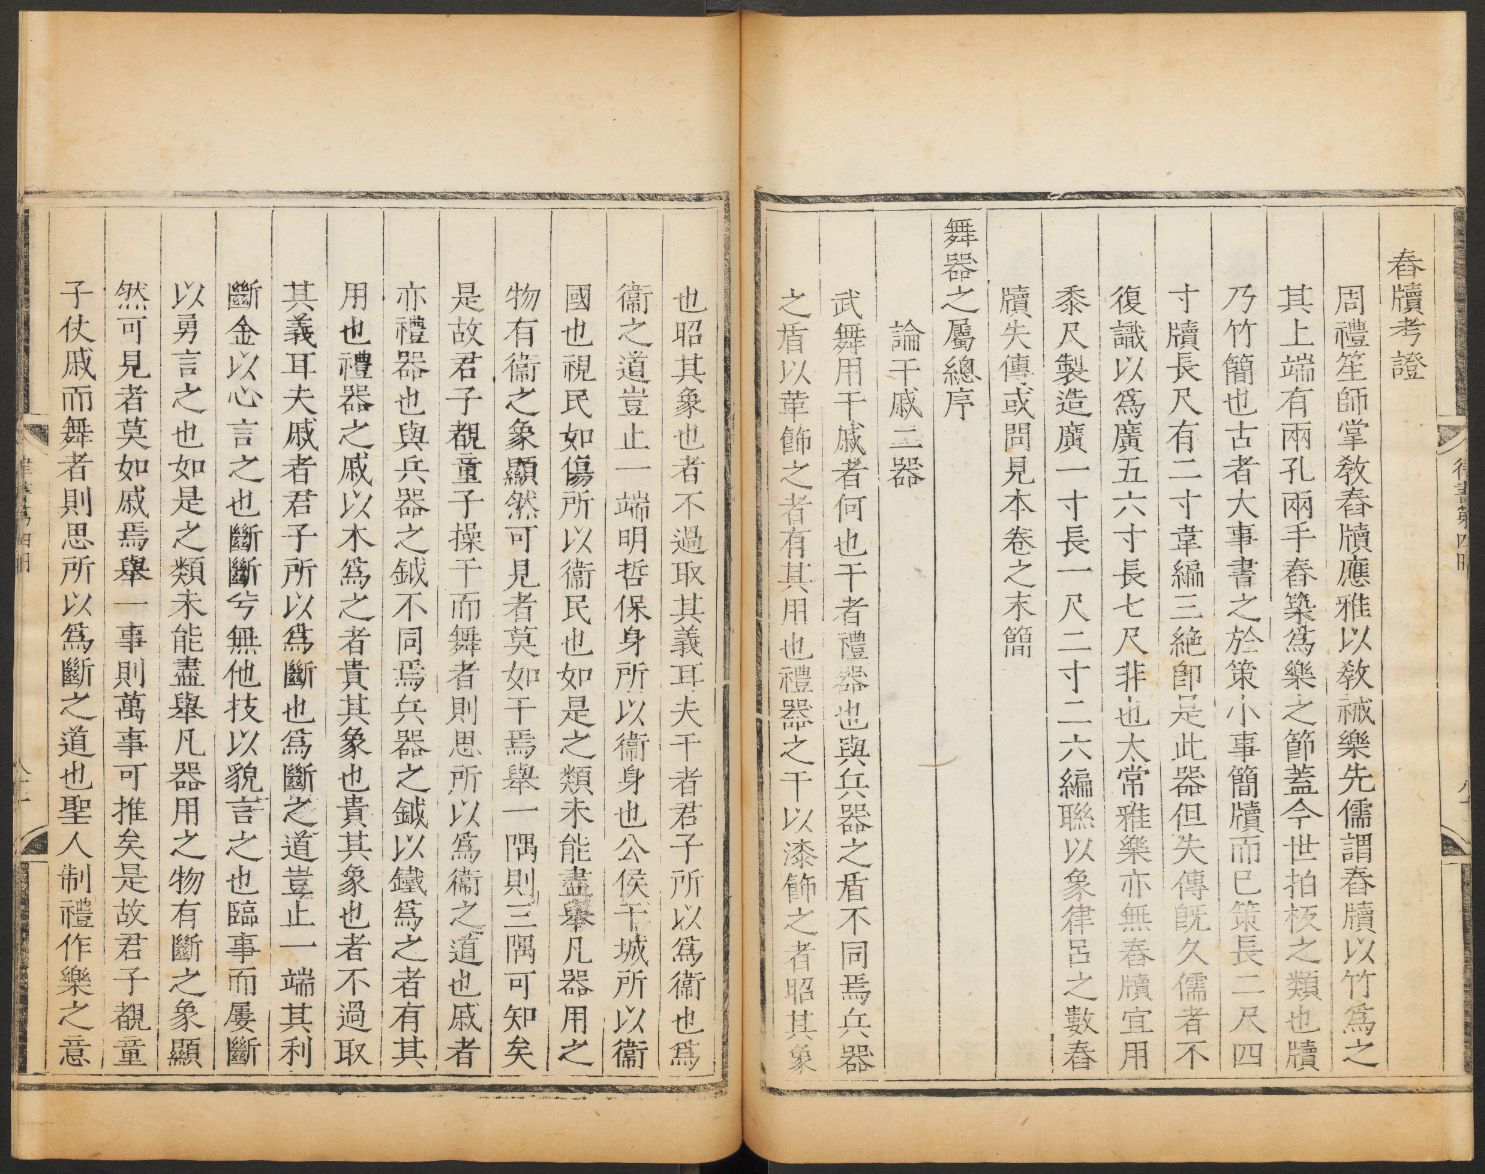 舂牘考證
周禮笙師掌敎舂牘應雅以敎祴樂先儒謂舂牘以竹爲之
其上端有兩孔兩手舂築爲樂之節蓋今世拍板之類也牘
乃竹簡也古者大事書之於策小事簡牘而已策長二尺四
寸牘長尺有二寸韋編三絶卽是此器但失傳旣久儒者不
復識以爲廣五六寸長七尺非也太常雅樂亦無舂牘宜用
黍尺製造廣一寸長一尺二寸二六編聯以象律呂之數舂
牘失傳或問見本卷之末簡
舞器之屬總序
論干戚二器
武舞用干戚者何也干者禮器也與兵器之盾不同焉兵器
之盾以革飾之者有其用也禮器之干以漆飾之者昭其象
也昭其象也者不過取其義耳夫干者君子所以爲衞也爲
衞之道豈止一端明哲保身所以衞身也公侯干城所以衞
國也視民如傷所以衞民也如是之類未能盡舉凡器用之
物有衞之象顯然可見者莫如干焉舉一隅則三隅可知矣
是故君子覩童子操干而舞者則思所以爲衞之道也戚者
亦禮器也與兵器之鉞不同焉兵器之鉞以鐵爲之者有其
用也禮器之戚以木爲之者貴其象也貴其象也者不過取
其義耳夫戚者君子所以爲斷也爲斷之道豈止一端其利
斷金以心言之也斷斷兮無他技以貌言之也臨事而屢斷
以勇言之也如是之類未能盡舉凡器用之物有斷之象顯
然可見者莫如戚焉舉一事則萬事可推矣是故君子覩童
子仗戚而舞者則思所以爲斷之道也聖人制禮作樂之意